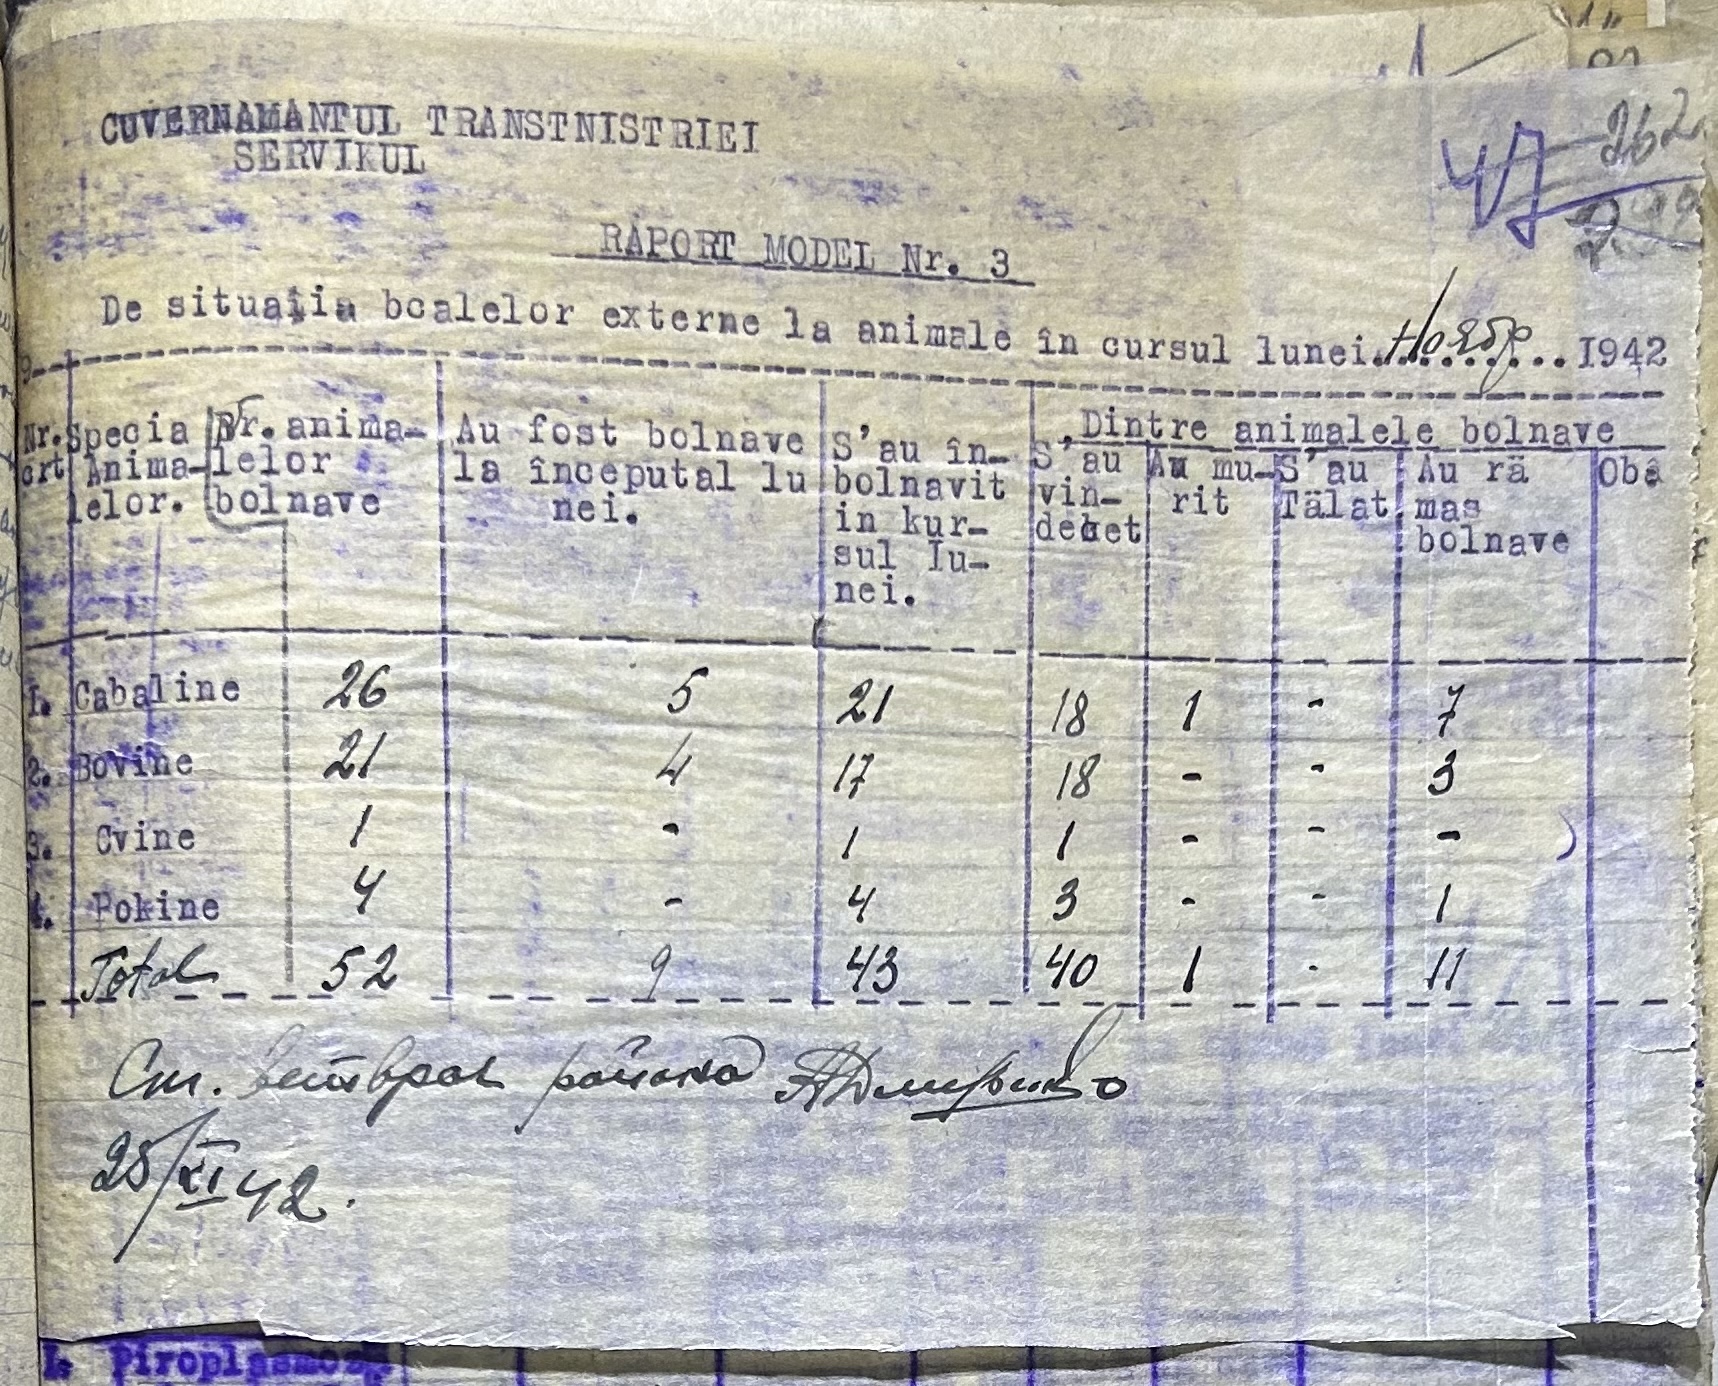 262
CUVERNAMANTUL TRANSTNISTRIEI
SERVIKUL
RAPORT MODEL Nr. 3
De situaţia bcalelor externe la animale în cursul lunei. Ноябр... 1942
Nr. crt Specia Anima- lelor. Nr. anima- lelor bolnave Au fost bolnave la începutal lu nei. S'au în- bolnavit in kur- sul Iu- nei. Dintre animalele bolnave S'au vin- decet Au mu- rit S'au Tälat. Au rä mas bolnave Obâ
1. Cabaline 26 5 21 18 1 - 7
2. Bovine 21 4 17 18 - - 3
3. Cvine 1 - 1 1 - - -
4. Pokine 4 - 4 3 - - 1
Total 52 9 43 40 1 - 11
Ст. ветврач района
28/XI 42.
I. Piroplasmoza